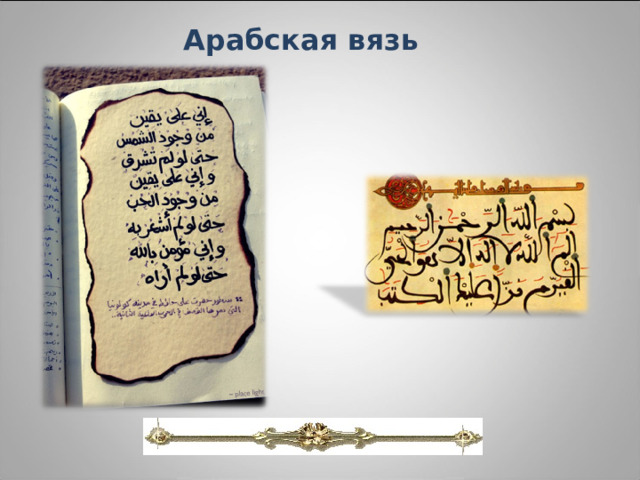 Арабская вязь
إني على يقين
من وجود الشمس
حتى لو لم تشرق
و إني على يقين
من وجود الحب
حتى لو لم أشعر به
و إني مؤمن بالله
حتى لو لم أراه
سطور حفرت على حائط في مدينة كولونيا
~ place light
بسم الله الرحمن الرحيم
الم الله لا اله الا هو الحي
القيوم نزل عليك الكتب